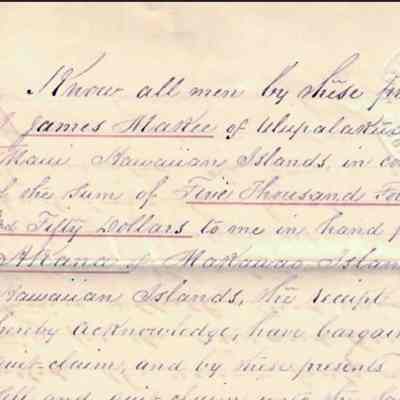 Know all men by these
James Makee of Ulupalakua
Maui Hawaiian Islands, in
the sum of Five Thousand
Fifty Dollars to me in hand
Akana of Makawao Islan
Hawaiian Islands, the receipt
hereby acknowledge, have bargain
quit-claim, and by these presents
and quit-claim unto the